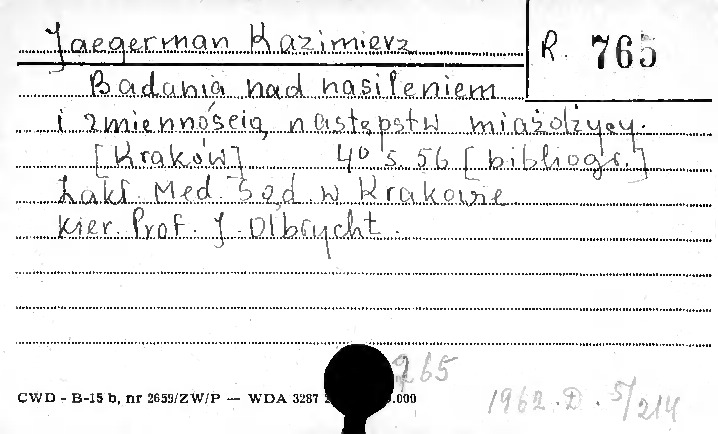 Jaegerman Kazimierz
R. 765
Badania nad nasileniem
i zmiennością następstw miażdżycy.
[Kraków] 4° s. 56 [bibliogr.]
Zakł. Med. Sąd. w Krakowie
Kier. Prof. J. Olbrycht.
265
CWD - B-15 b, nr 2659/ZW/P — WDA 3287 .000
1962. D. 5/214